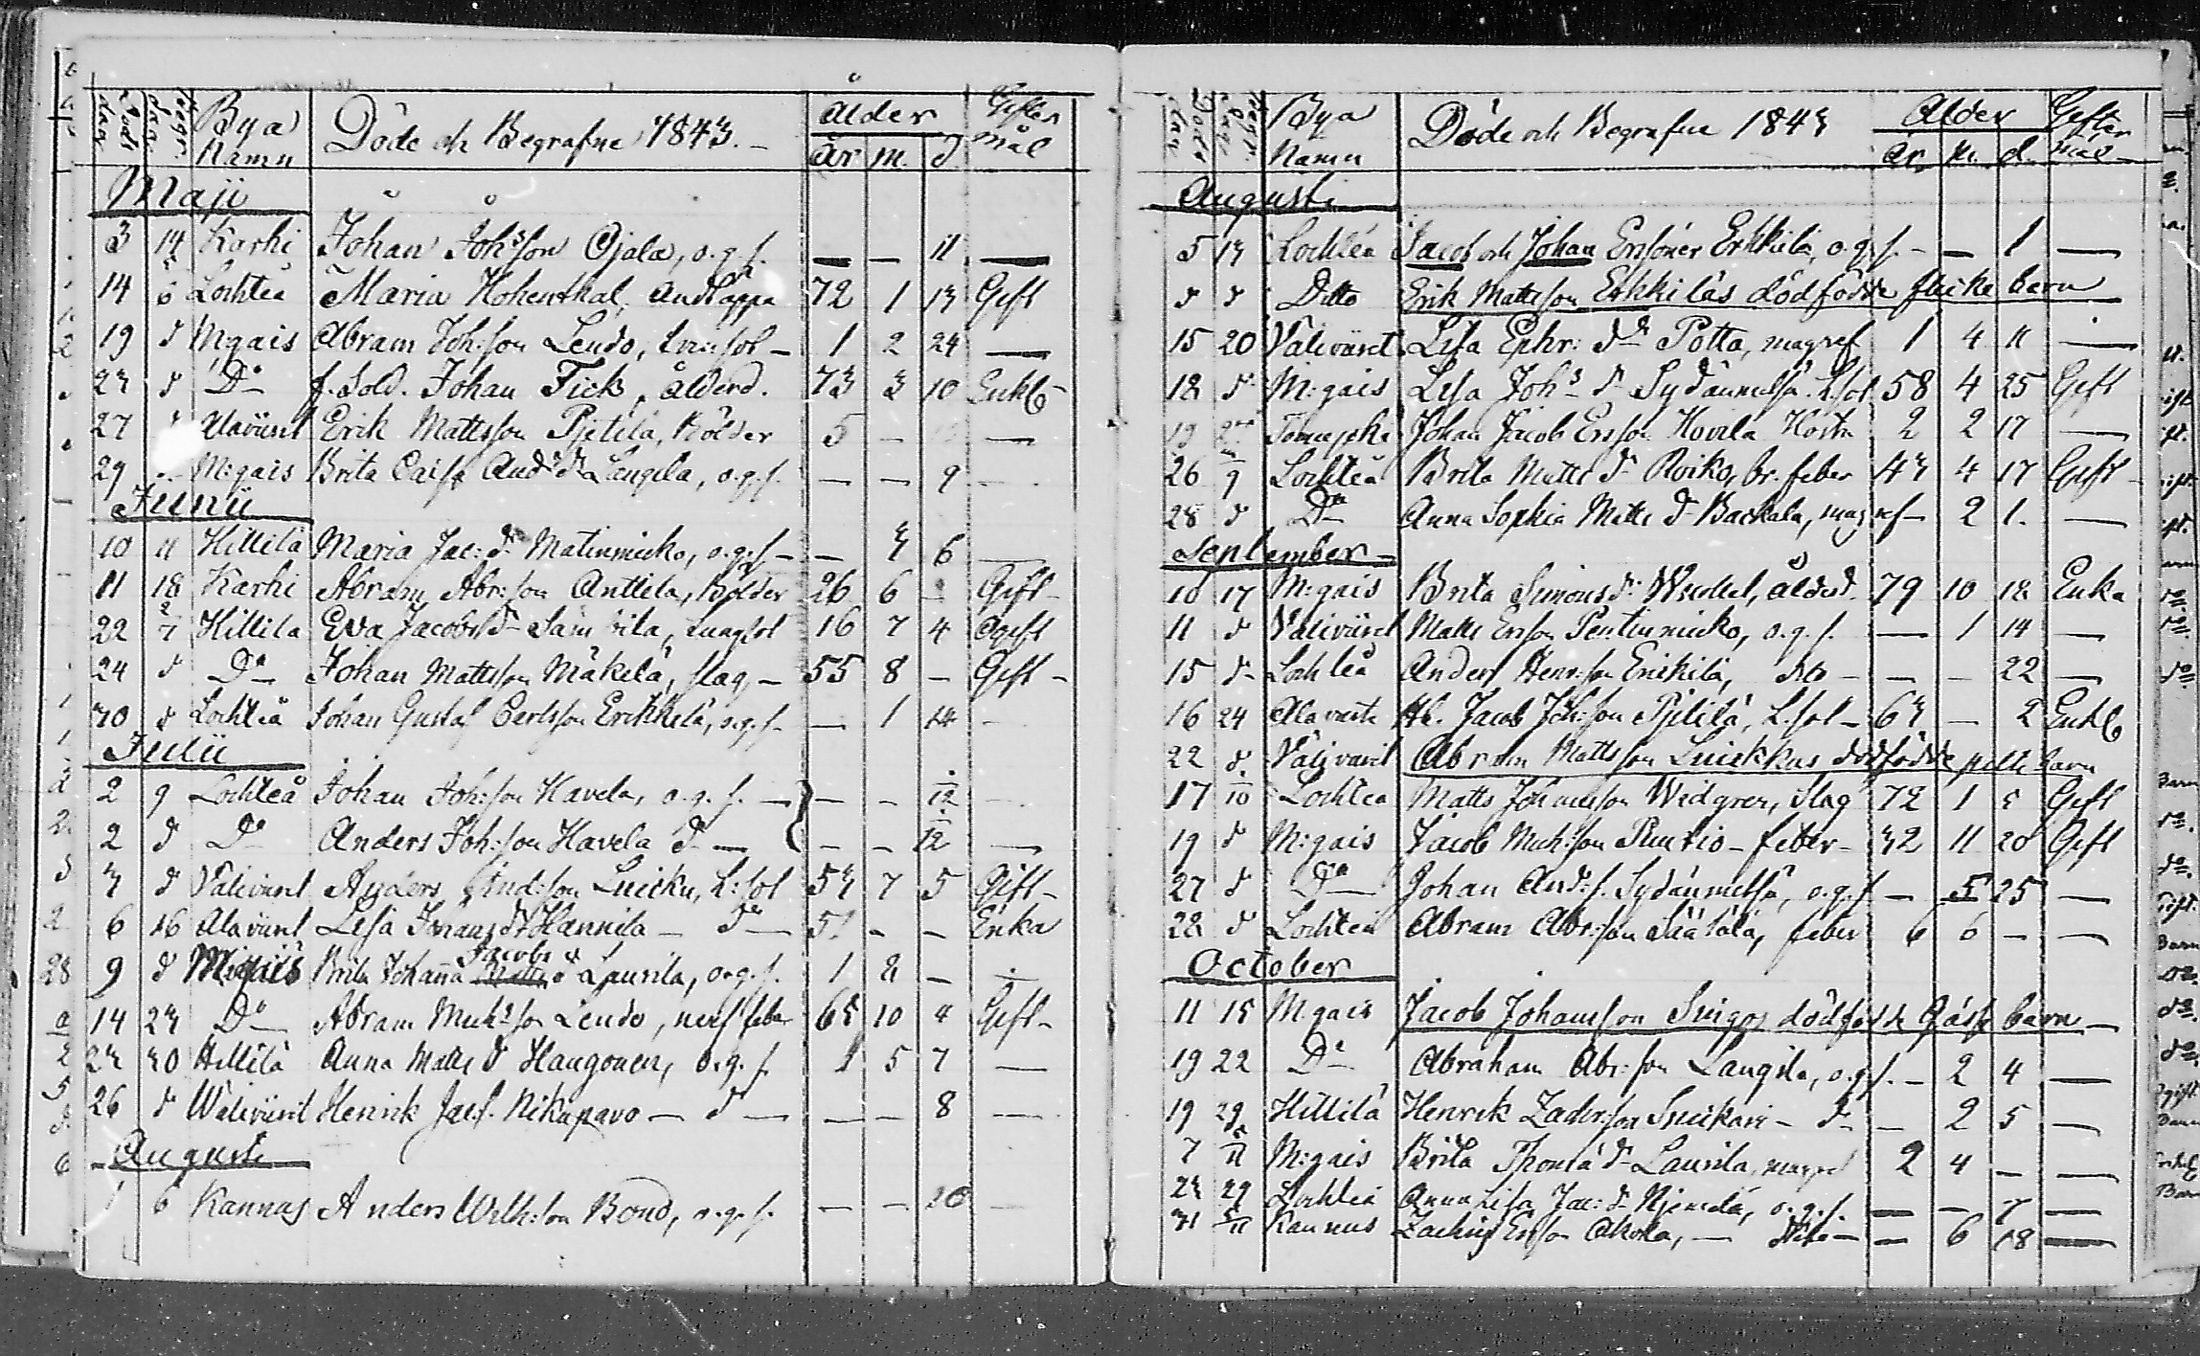 Döds dag Begr. dag Bya Namn Döde och Begrafne 1843. Ålder år m. d. Giftermål
Maji
3 14 Karhi Johan Joh:sson Ojala, o.g.s. — — 11 —
14 5/6 Lochteå Maria Hohenthal, 72 1 13 Gift
19 d Mgais Abram Joh:son Lendo, 1 2 24 —
23 d Do f. Sold. Johan Fick, ålderd. 73 3 10 Enkl
27 Alaviirret Erik Mattsson Pjetilä, Kölder 5 — —
29 M:gais Brita Caisa And: dr Langila, o.g.s. — — 9
Junii
10 11 Hillilä Maria Jac: dr Matinmicko, o.g.s. — 3 6 —
11 18 Karhi Abram Abr:son Anttila, Kölder 26 6 - Gift
22 2/7 Hillila Eva Jacobs dr lungsot 16 7 4 Ogift
24 d Do Johan Mattsson Mäkelä, slag, 55 8 — Gift
30 d Lochteå Johan Gustaf Carlsson Erkkilä, o.g.s. — 1 14 -
Julii
2 9 Lochteå Johan Joh:son Havela, o.g.s. — — — 1/12
2 d Do Anders Joh:son Havela do — — — 1/12 —
3 d Väliviirret Anders And:son Luicku, L:sot 53 7 5 Gift
6 16 Alaviirret Lisa Johans dr Hannila — do — 5 - - Enka
9 d M:gais Brita Johanna Jacobs dr Laurila, o.g.s. 1 2 — —
14 23 Do Abram Mich:son Lendo, nerf feber 65 10 4 Gift
23 30 Hillilä Anna Matts dr Haugonen, o.g.s. 1 5 7 —
26 d Wäliviirret Henrik Jacs. Nikupavo — do — — — 8 —
Augusti
1 6 Kannus Anders Wilh:son Bond, o.g.s. — — 20 —
Döds dag Begr. dag Bya Namn Döde och Begrafne 1843 Ålder år m. d. Giftermål
Augusti
5 13 Lochteå Jacob och Johan Erssöner Erkkilä, o.g.s. — — 1 —
d d Ditto Erik Mattsson Erkkiläs dödfödde flicke barn
15 20 Väliviirret Lisa Ephr: dr Potta, magref 1 4 11 —
18 d M:gais Lisa Joh: dr Sydänmetsä L:sot 58 4 25 Gift
19 27 Tomujoki Johan Jacob Ersson Hovila Hosta 2 2 17 —
26 9 Lochteå Brita Matts dr Roiko, br. feber 43 4 17 Gift
28 d Do Anna Sophia Matts dr Backala, magref — 2 1. —
September
10 17 M:gais Brita Simons dr ålderd. 79 10 18 Enka
11 d Väliviirret Matts Ersson Pentinmicko, o.g.s. — 1 14 —
15 d Lochteå Anders Henr:son Erikilä, dito — — — 22 —
16 24 Alaviirre Jacob Joh:son Pjetilä, L:sot 63 — 2 Enkl
22 d. Väliviirret Abram Mattsson Luickkus dödfödde pilte barn
17 1/10 Lochteå Matts Johansson Widgren, Slag 72 1 5 Gift
19 d M:gais Jacob Mich:son Puutio — feber — 32 11 20 Gift
27 d Do Johan And:s. Sydänmetsä, o.g.s. — 5 25 —
28 d Lochteå Abram Abr:son Säätälä, feber 6 6 — —
October
11 15 M:gais Jacob Johansson Singos dödfödde Gåsse barn —
19 22 Do Abraham Abr:son Langila, o.g.s. — 2 4 —
19 29 Hillilä Henrik Zachrsson Snickari — do — 2 5 —
7 5/11 M:gais Brita Thoms dr Laurila, magref 2 4 — —
23 29 Lochteå Anna Lisa Jac: dr Njemelä, o.g.s. — — 7 —
31 5/11 Kannus Zachris Ersson Okola, — dito — — 6 18 —